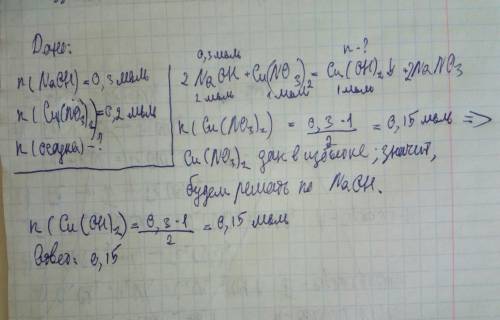 Дано:
n(NaOH)=0,3 моль
n(Cu(NO3)2)=0,2 моль
n(осадка)-?
0,3 моль n-?
2NaOH+Cu(NO3)2=Cu(OH)2↓+2NaNO3
2 моль 1 моль 1 моль
n(Cu(NO3)2) = 0,3·1/2 = 0,15 моль =>
Cu(NO3)2 дан в избытке; значит,
будем решать по NaOH.
n(Cu(OH)2)=0,3·1/2=0,15 моль
Ответ: 0,15